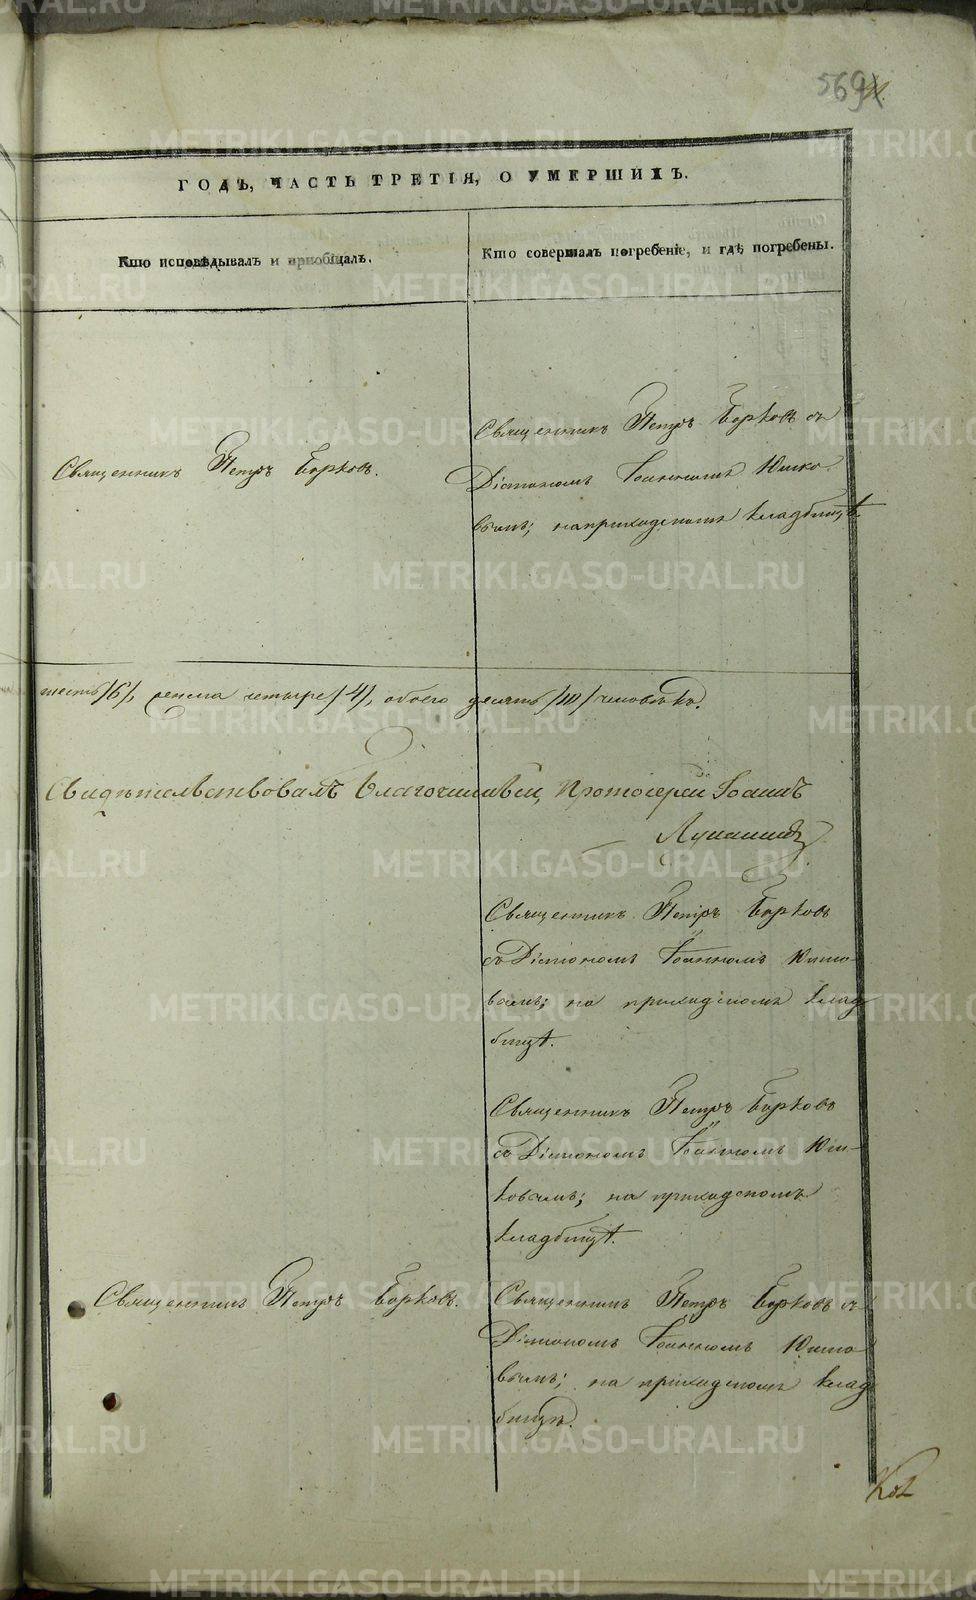 569
ГОДЪ, ЧАСТЬ ТРЕТІЯ, О УМЕРШИХЪ.
Кто исповѣдывалъ и пріобщалъ.
Кто совершалъ погребеніе, и гдѣ погребены.
Священникъ Петръ Борковъ.
Священникъ Петръ Борковъ съ
Діакономъ Іоанномъ Юшко-
вымъ; на приходскомъ кладбищѣ.
шесть /6/, женска четыре /4/, обоего десять /10/ человѣкъ.
Свидѣтельствовалъ Благочинный, Протоіерей Іоаннъ
Священникъ Петръ Борковъ
съ Діакономъ Іоанномъ Юшко-
вымъ; на приходскомъ клад-
бищѣ.
Священникъ Петръ Борковъ
съ Діакономъ Іоанномъ Юш-
ковымъ; на приходскомъ
кладбищѣ.
Священникъ Петръ Борковъ.
Священникъ Петръ Борковъ съ
Діакономъ Іоанномъ Юшко-
вымъ; на приходскомъ клад-
бищѣ.
METRIKI.GASO-URAL.RU